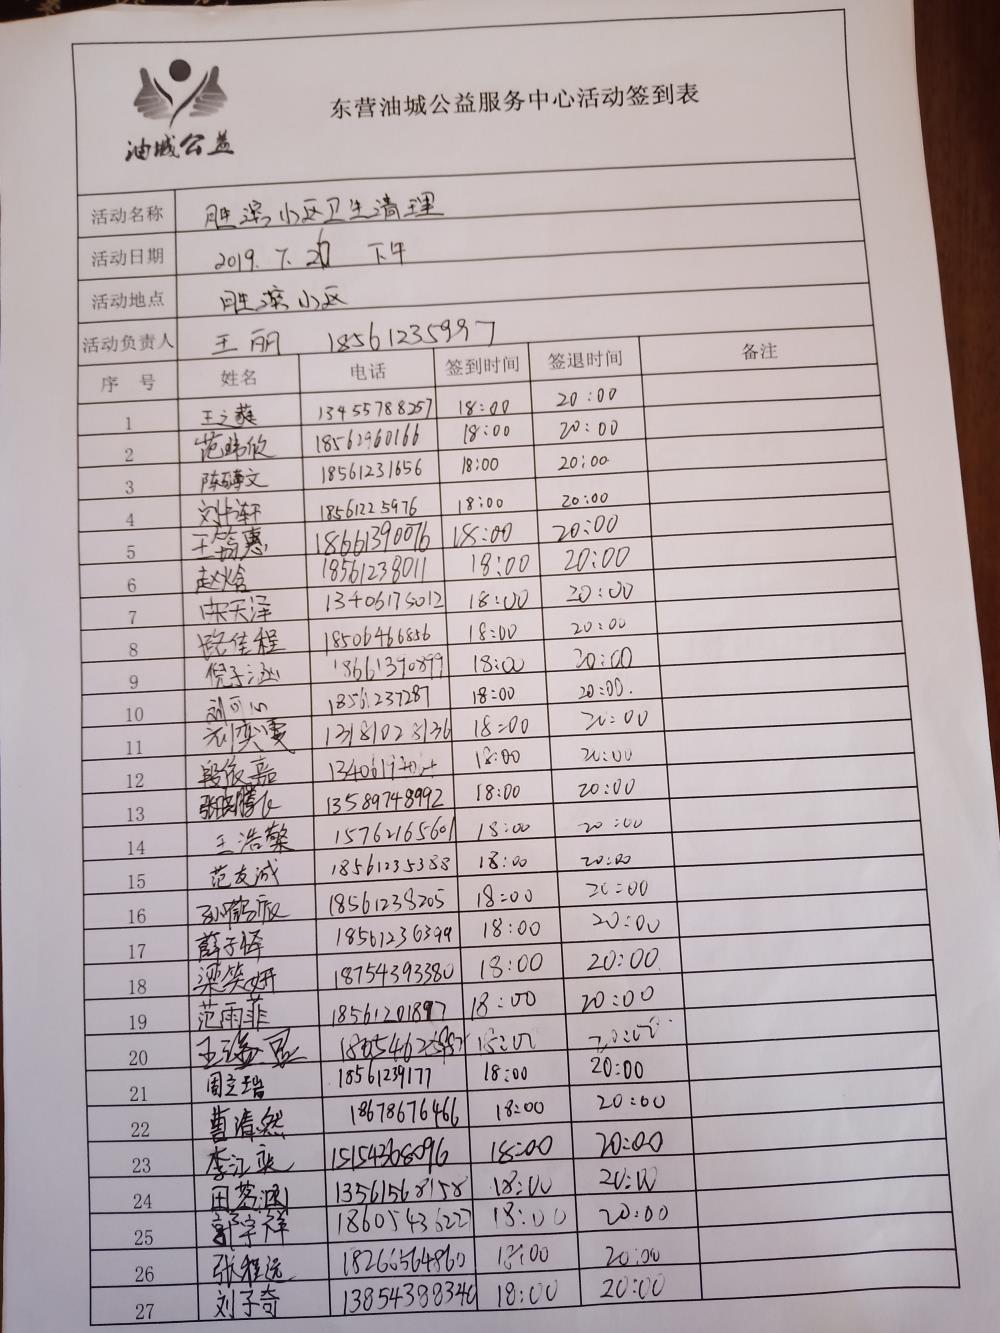 油城公益
东营油城公益服务中心活动签到表
活动名称 胜滨小区卫生清理
活动日期 2019.7. 下午
活动地点 胜滨小区
活动负责人 王丽 18561235997
序号 姓名 电话 签到时间 签退时间 备注
1 13455788257 18:00 20:00
2 范晴欣 18562960166 18:00 20:00
3 18561231656 18:00 20:00
4 18561225976 18:00 20:00
5 王筠惠 18661390076 18:00 20:00
6 赵焓 18561238011 18:00 20:00
7 宋天泽 13406175012 18:00 20:00
8 路佳程 18506466856 18:00 20:00
9 倪子涵 18661390899 18:00 20:00
10 刘可心 18561237287 18:00 20:00.
11 刘奕雯 13181028136 18:00 20:00
12 段依嘉 18:00 20:00
13 13589748992 18:00 20:00
14 王浩馨 15762165601 18:00 20:00
15 范友诚 18561235388 18:00 20:00
16 18561238205 18:00 20:00
17 薛子怿 18561236399 18:00 20:00
18 梁笑妍 18754393380 18:00 20:00
19 范雨菲 18561201897 18:00 20:00
20 18:00 20:00
21 周立瑞 18561239177 18:00 20:00
22 曹清然 18678676466 18:00 20:00
23 15154368096 18:00 20:00
24 田茗涵 13561568158 18:00 20:00
25 郭宇祥 18605436227 18:00 20:00
26 张程远 18266564860 18:00 20:00
27 刘子奇 13854388340 18:00 20:00